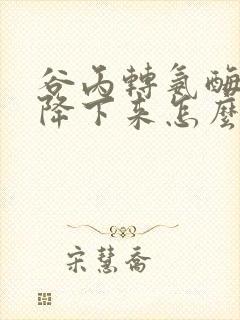 谷丙轉氨酶
降下来怎麼
宋慧喬